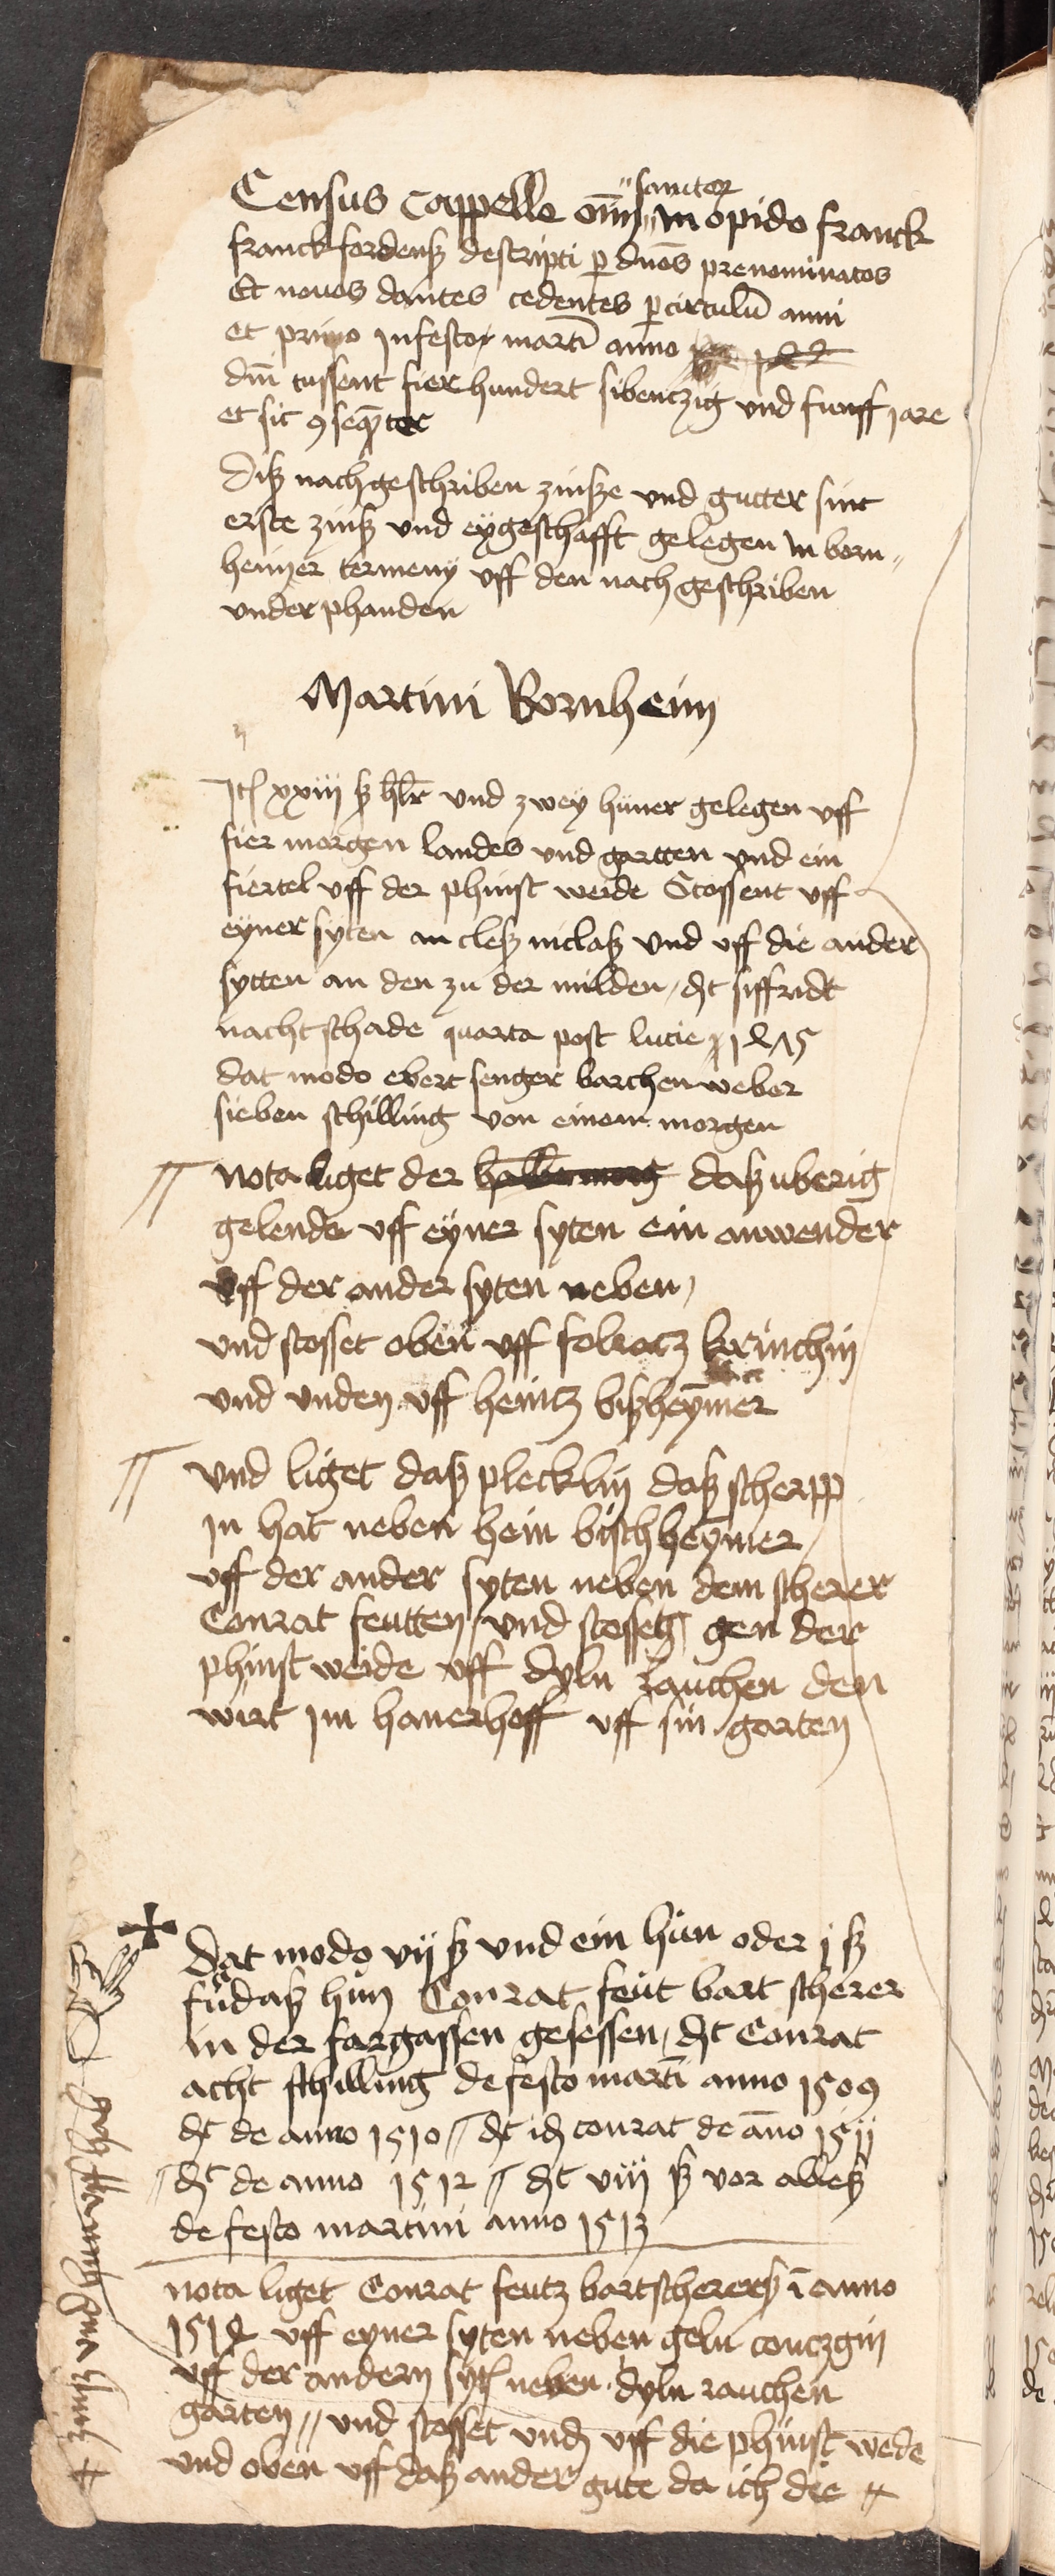 Census Cappelle om̅ sanctor̅ in opido franck
franckfordenß descripti p̲ dn̅os prenominatos
Et nouos dantes cedentes p̲ circulu̅ anni
et primo in festo martī anno
dn̅i tussent fierhundert sibenczig und funff jare
et sic ꝯseqn̅ter
Diß nachgeschriben zinße vnd gutter sint
erste zinß vnd eygeschafft gelegen in born„
heimer termeny vff den nachgeschriben
vnderphanden
Martini Bornheim
Itē xxiij ß hlr̅ vnd zwey hüner gelegen vff
fier morgen landes vnd gartten vnd ein
fiertel vff der phinst weide Stossent vff
eyner syten an cleß niclaß vnd vff die ander
sytten an den zu der milden, dt siffridt
nachtschade quarta post lucie
dat modo ebert senger barchenweber
sieben schilling von einem morgen
nota liget der halbe morg daß uberig
gelende vff eyner syten ein anwender
vff der ander syten neben,
vnd stosset oben vff folratz krinchin
vnd vnden vff heintz bißheym̅er
vnd liget daß plecklin daß scherpp
in hat neben hein bischheym̅er
vff der ander syten neben dem scherer
Conrat feutten, vnd stosset gen der
phinst weide vff dyln rauchen den
wirt im hanerhoff vff sin garten
Dat modo vij ß vnd ein hün oder j ß
fu daß hün Conrat feut bart scherer
in der fargassen gesessen, dt Conrat
acht schilling de festo martī anno 1509
dt de anno 1510 // dt id conrat de an̅o 1511
// dt de anno 1512 // dt viij ß vor alleß
de festo martini anno 1513
nota liget Conrat feutz bartscherers ī anno
1514 vff eyner syten neben geln contzgin
vff der andern syt neben dyln rauchen
garten // vnd stosset vnd vff die phinst weide
vnd oben vff daß ander gute da ich die